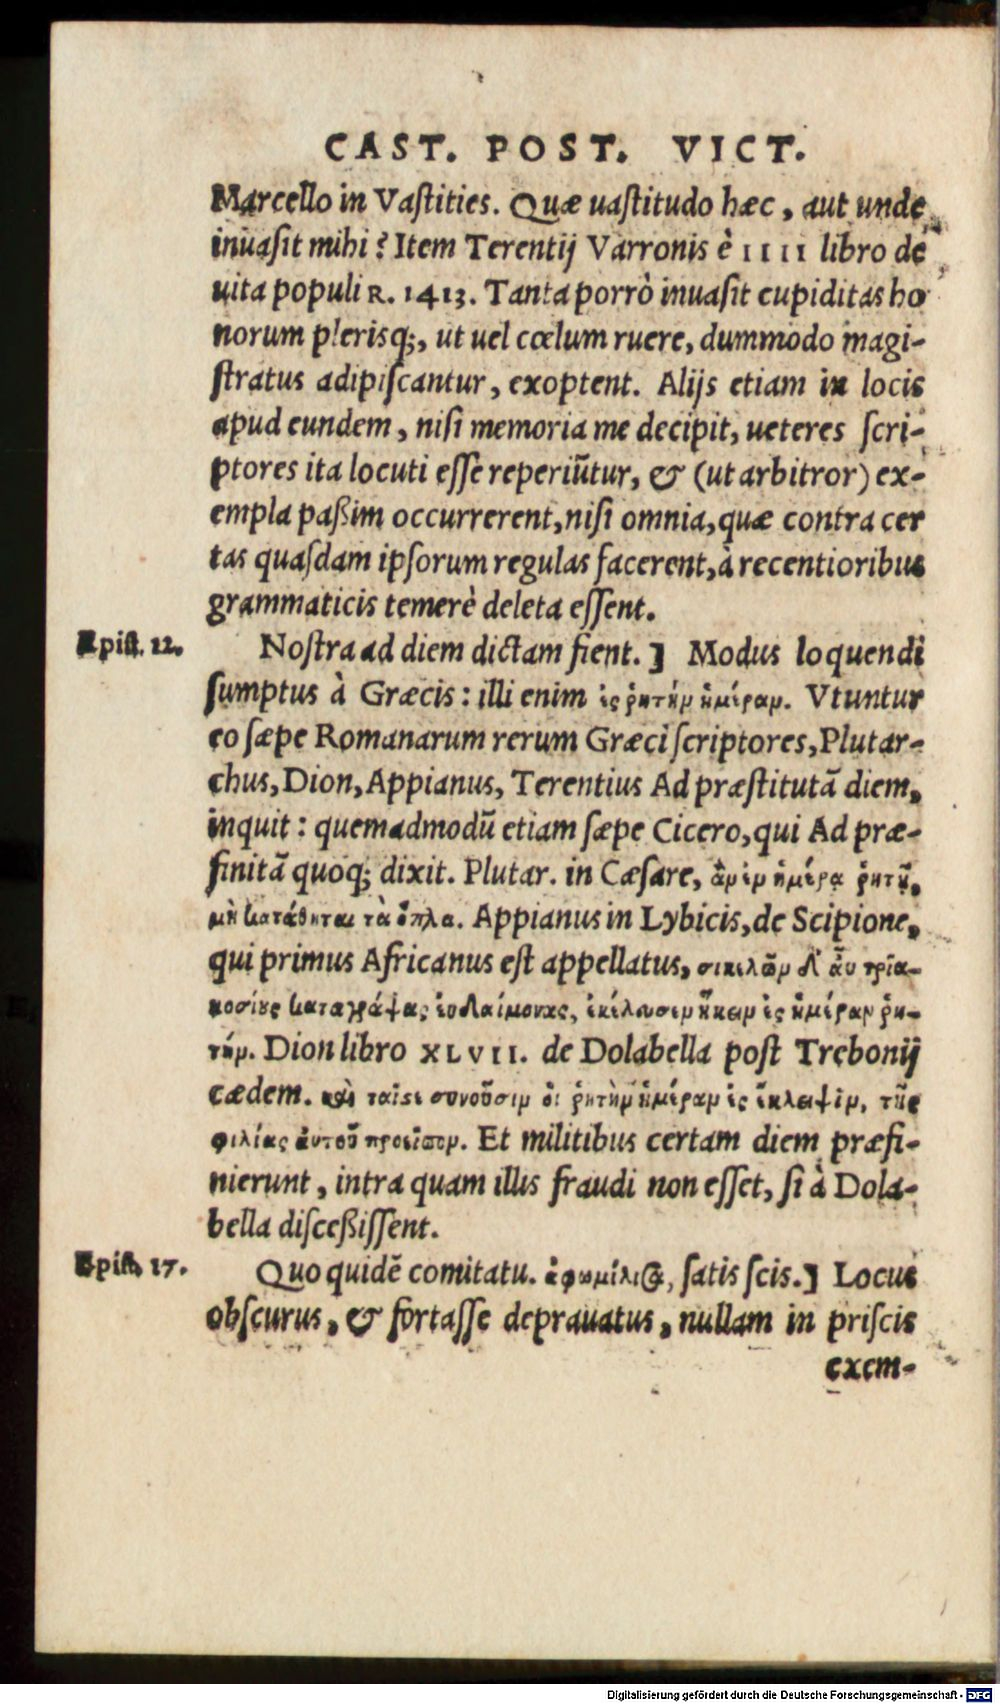 CAST. POST. VICT.
Marcello in Vastities. Quæ uastitudo hæc, aut unde
inuasit mihi? Item Terentij Varronis è IIII libro de
uita populi R. 1413. Tanta porrò inuasit cupiditas ho
norum plerisq;, ut uel cœlum ruere, dummodo magi-
stratus adipiscantur, exoptent. Alijs etiam in locis
apud eundem, nisi memoria me decipit, ueteres scri-
ptores ita locuti esse reperiũtur, & (ut arbitror) ex-
empla paßim occurrerent, nisi omnia, quæ contra cer
tas quasdam ipsorum regulas facerent, à recentioribus
grammaticis temerè deleta essent.
Epist. 12. Nostra ad diem dictam fient.] Modus loquendi
sumptus à Græcis: illi enim ἐς ῥητὴν ἡμέραν. Vtuntur
eo sæpe Romanarum rerum Græci scriptores, Plutar-
chus, Dion, Appianus, Terentius Ad præstitutã diem,
inquit: quemadmodũ etiam sæpe Cicero, qui Ad præ-
finitã quoq; dixit. Plutar. in Cæsare, ἂν ἐν ἡμέρα ῥητῇ,
μὴ κατάθηται τὰ ὅπλα. Appianus in Lybicis, de Scipione,
qui primus Africanus est appellatus, σικελῶν δ' ἂυ τρια-
κοσίους καταγράψας ἐυδαίμονας, ἐκέλευσεν ἥκειν ἐς ἡμέραν ῥη-
τήν. Dion libro XLVII. de Dolabella post Trebonij
cædem. καὶ τοῖσι συνοῦσιν οἱ ῥητὴν ἡμέραν ἐς ἔκλειψιν, τῆς
φιλίας ἀυτοῦ προεῖπον. Et militibus certam diem præfi-
nierunt, intra quam illis fraudi non esset, si à Dola-
bella disceßissent.
Epist. 17. Quo quidẽ comitatu. ἀφωμίλησα, satis scis.] Locus
obscurus, & fortasse deprauatus, nullam in priscis
exem-
Digitalisierung gefördert durch die Deutsche Forschungsgemeinschaft - DFG